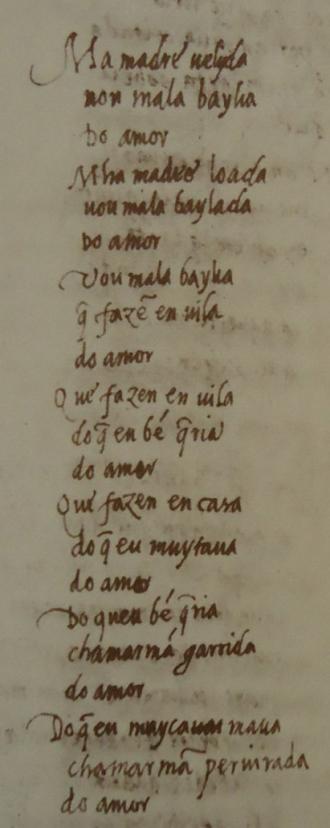 Ma madre velyda
uou mala baylia
Do amor
Mha madre loada
uou mala baylada
Do amor
Vou mala baylia
q̃ fazẽ en uila
do amor
Que fazen en uila
do q̃ eu bẽ q̃ria
do amor
Que fazen en casa
do q̃ eu muytaua
do amor
Do queu bẽ q̃ria
chamar mã garrida
do amor
Do q̃ eu muy maua
chamar mã periurada
do amor